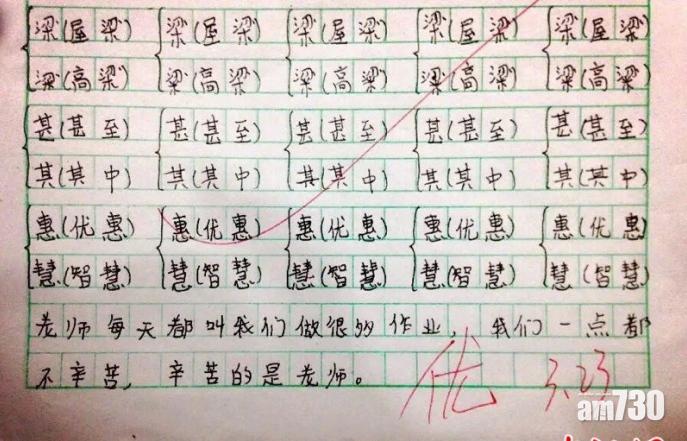 梁(屋梁) 梁(屋梁) 梁(屋梁) 梁(屋梁) 梁(屋梁)
粱(高粱) 粱(高粱) 粱(高粱) 粱(高粱) 粱(高粱)
甚(甚至) 甚(甚至) 甚(甚至) 甚(甚至) 甚(甚至)
其(其中) 其(其中) 其(其中) 其(其中) 其(其中)
惠(优惠) 惠(优惠) 惠(优惠) 惠(优惠) 惠(优惠)
慧(智慧) 慧(智慧) 慧(智慧) 慧(智慧) 慧(智慧)
老师每天都叫我们做很多作业，我们一点都
不辛苦，辛苦的是老师。
优 3.23
am730